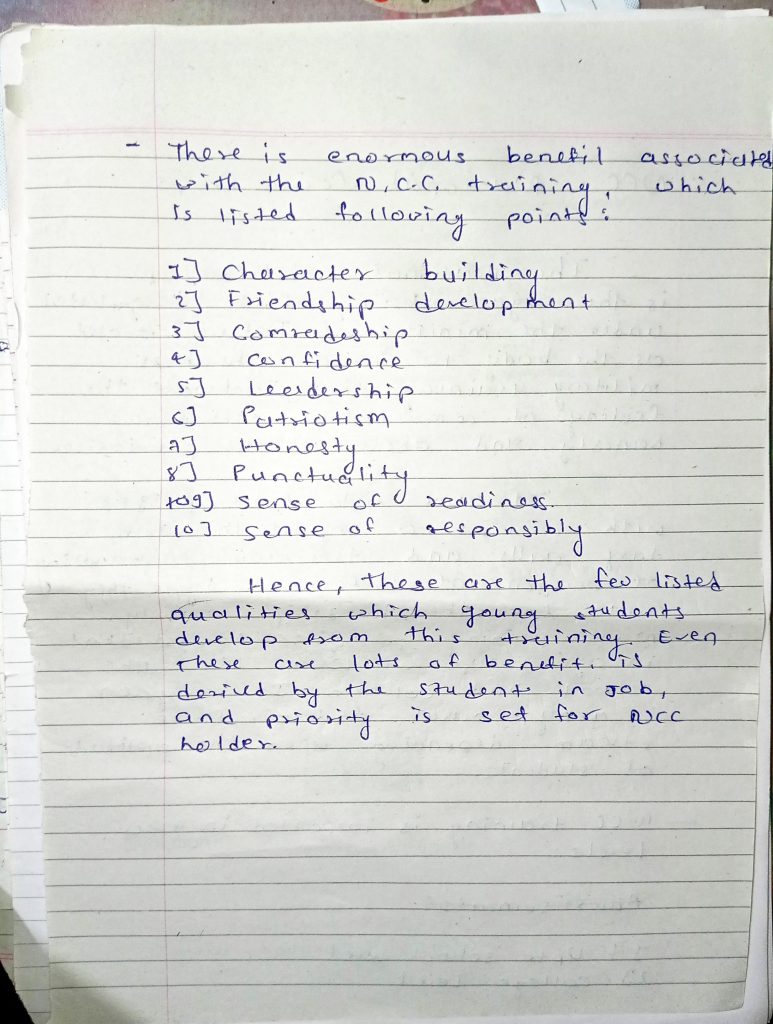 - There is enormous benefit associated
with the N.C.C. training, which
is listed following points :
1] Character building
2] Friendship development
3] Comradeship
4] Confidence
5] Leadership
6] Patriotism
7] Honesty
8] Punctuality
9] Sense of readiness.
10] Sense of responsibly
Hence, these are the few listed
qualities which young students
develop from this training. Even
there are lots of benefit. is
derived by the student in Job,
and priority is set for NCC
holder.